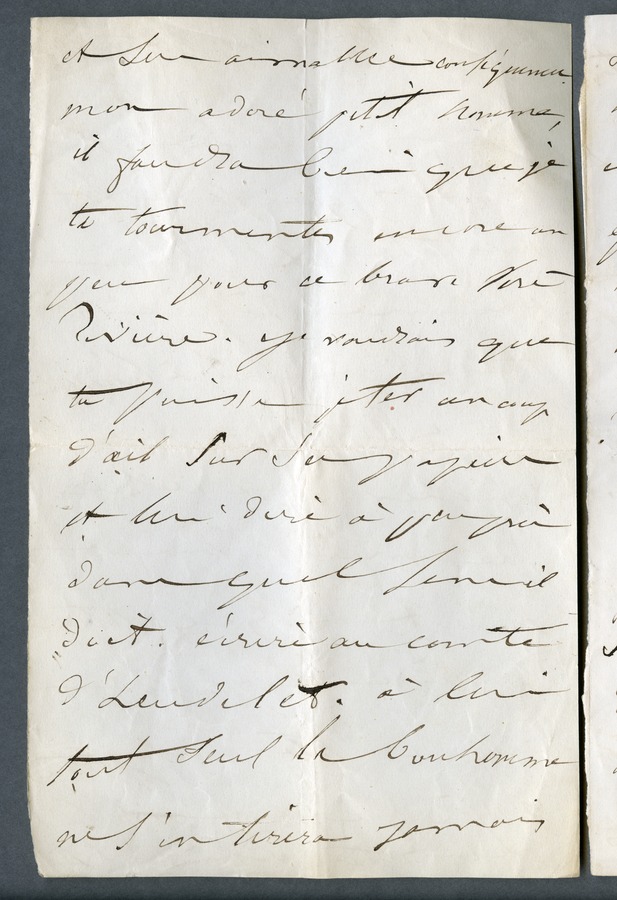 et son aimable conséquence
mon adoré petit homme,
il faudra bien que je
te tourmentes encore un
peu pour ce brave Père
Rivière. je voudrais que
tu puisse jeter un coup
d'œil sur ses papiers
et lui dire à peu près
dans quel sens il
doit écrire au comte
à lui
tout seul le bonhomme
ne s'en tirera jamais